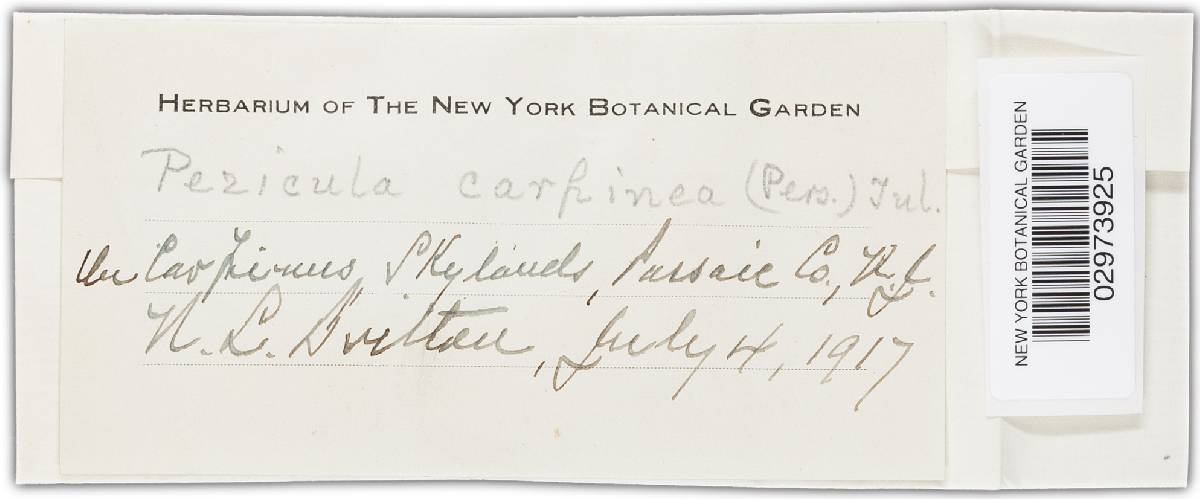 HERBARIUM OF THE NEW YORK BOTANICAL GARDEN
Pezicula carpinea (Pers.) Tul.
On Carpinus, Skylands, Passaic Co., N.J.
N. L. Britton, July 4, 1917
NEW YORK BOTANICAL GARDEN
02973925